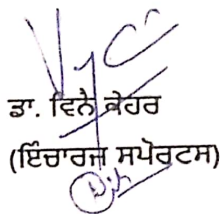 ਡਾ. ਵਿਨੈ ਕੇਹਰ
(ਇੰਚਾਰਜ ਸਪੋਰਟਸ)